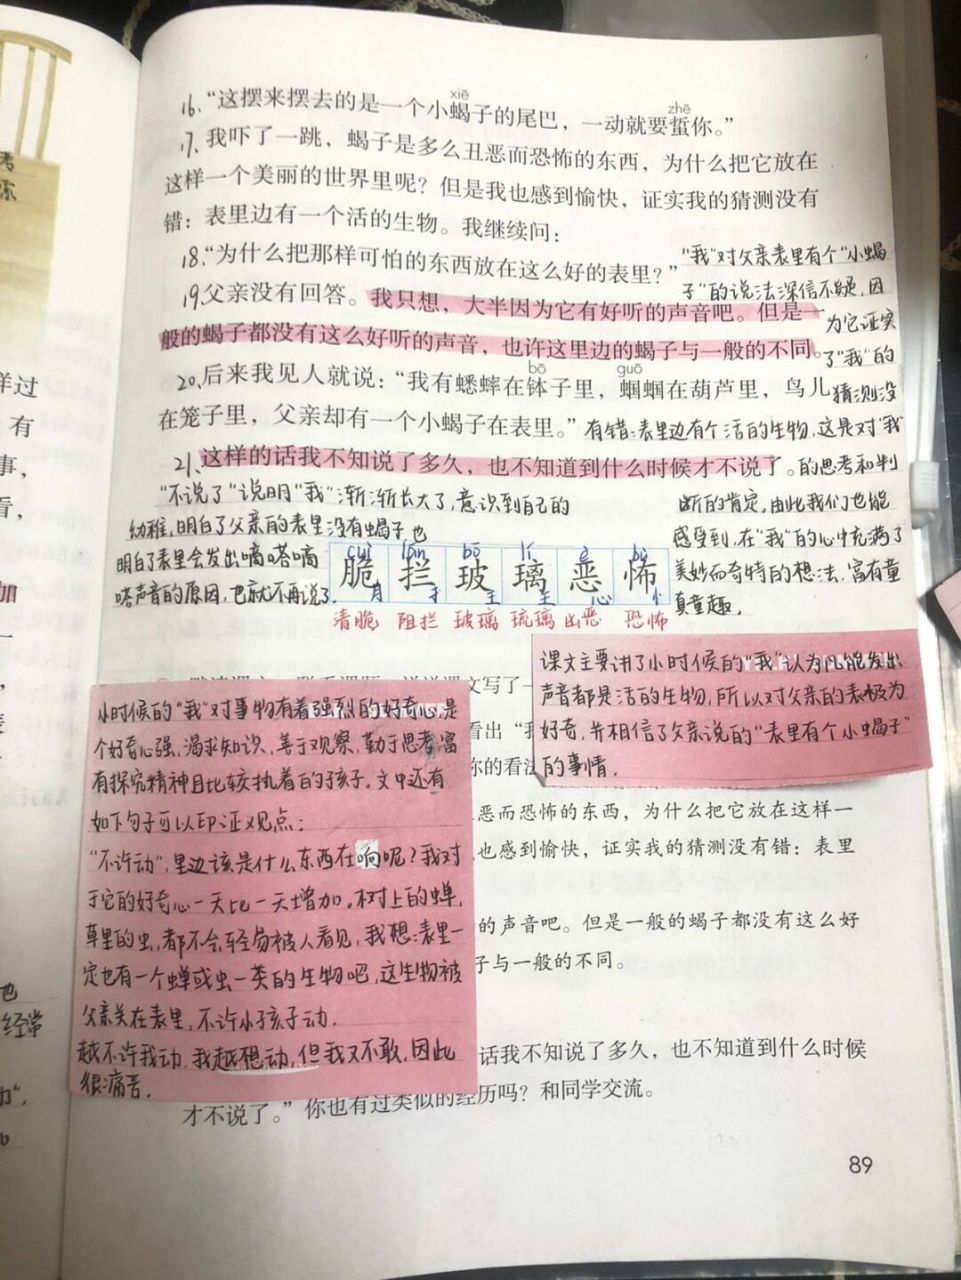 xiē zhē
16.“这摆来摆去的是一个小蝎子的尾巴，一动就要蜇你。”
17.我吓了一跳，蝎子是多么丑恶而恐怖的东西，为什么把它放在
这样一个美丽的世界里呢？但是我也感到愉快，证实我的猜测没有
错：表里边有一个活的生物。我继续问：
18.“为什么把那样可怕的东西放在这么好的表里？”
19.父亲没有回答。我只想，大半因为它有好听的声音吧。但是一
般的蝎子都没有这么好听的声音，也许这里边的蝎子与一般的不同。
bō guō
20.后来我见人就说：“我有蟋蟀在钵子里，蝈蝈在葫芦里，鸟儿
在笼子里，父亲却有一个小蝎子在表里。”
21.这样的话我不知说了多久，也不知道到什么时候才不说了。
“我”对父亲表里有个“小蝎
子”的说法深信不疑，因
为它证实
了“我”的
猜测没
有错：表里边有个活的生物，这是对“我”
的思考和判
断的肯定。由此我们也能
感受到，在“我”的心中充满了
美妙而奇特的想法，富有童
真童趣。
“不说了”说明“我”渐渐长大了，意识到自己的
幼稚，明白了父亲的表里没有蝎子，也
明白了表里会发出嘀嗒嘀
嗒声音的原因，也就不再说了。
cuì lán bō lí è bù
脆 拦 玻 璃 恶 怖
月 扌 王 王 心 忄
清脆 阻拦 玻璃 琉璃 凶恶 恐怖
课文主要讲了小时候的“我”认为凡能发出
声音都是活的生物，所以对父亲的表极为
好奇，并相信了父亲说的“表里有个小蝎子”
的事情。
小时候的“我”对事物有着强烈的好奇心，是
个好奇心强，渴求知识，善于观察，勤于思考，富
有探究精神且比较执着的孩子。文中还有
如下句子可以印证观点：
“不许动”，里边该是什么东西在响呢？我对
于它的好奇心一天比一天增加。树上的蝉，
草里的虫，都不会轻易被人看见，我想：表里一
定也有一个蝉或虫一类的生物吧，这生物被
父亲关在表里，不许小孩子动。
越不许我动，我越想动，但我又不敢，因此
很痛苦。
看出“我
你的看法
恶而恐怖的东西，为什么把它放在这样一
也感到愉快，证实我的猜测没有错：表里
的声音吧。但是一般的蝎子都没有这么好
子与一般的不同。
话我不知说了多久，也不知道到什么时候
才不说了。”你也有过类似的经历吗？和同学交流。
89
样过
有
事，
看，
加
也
经常